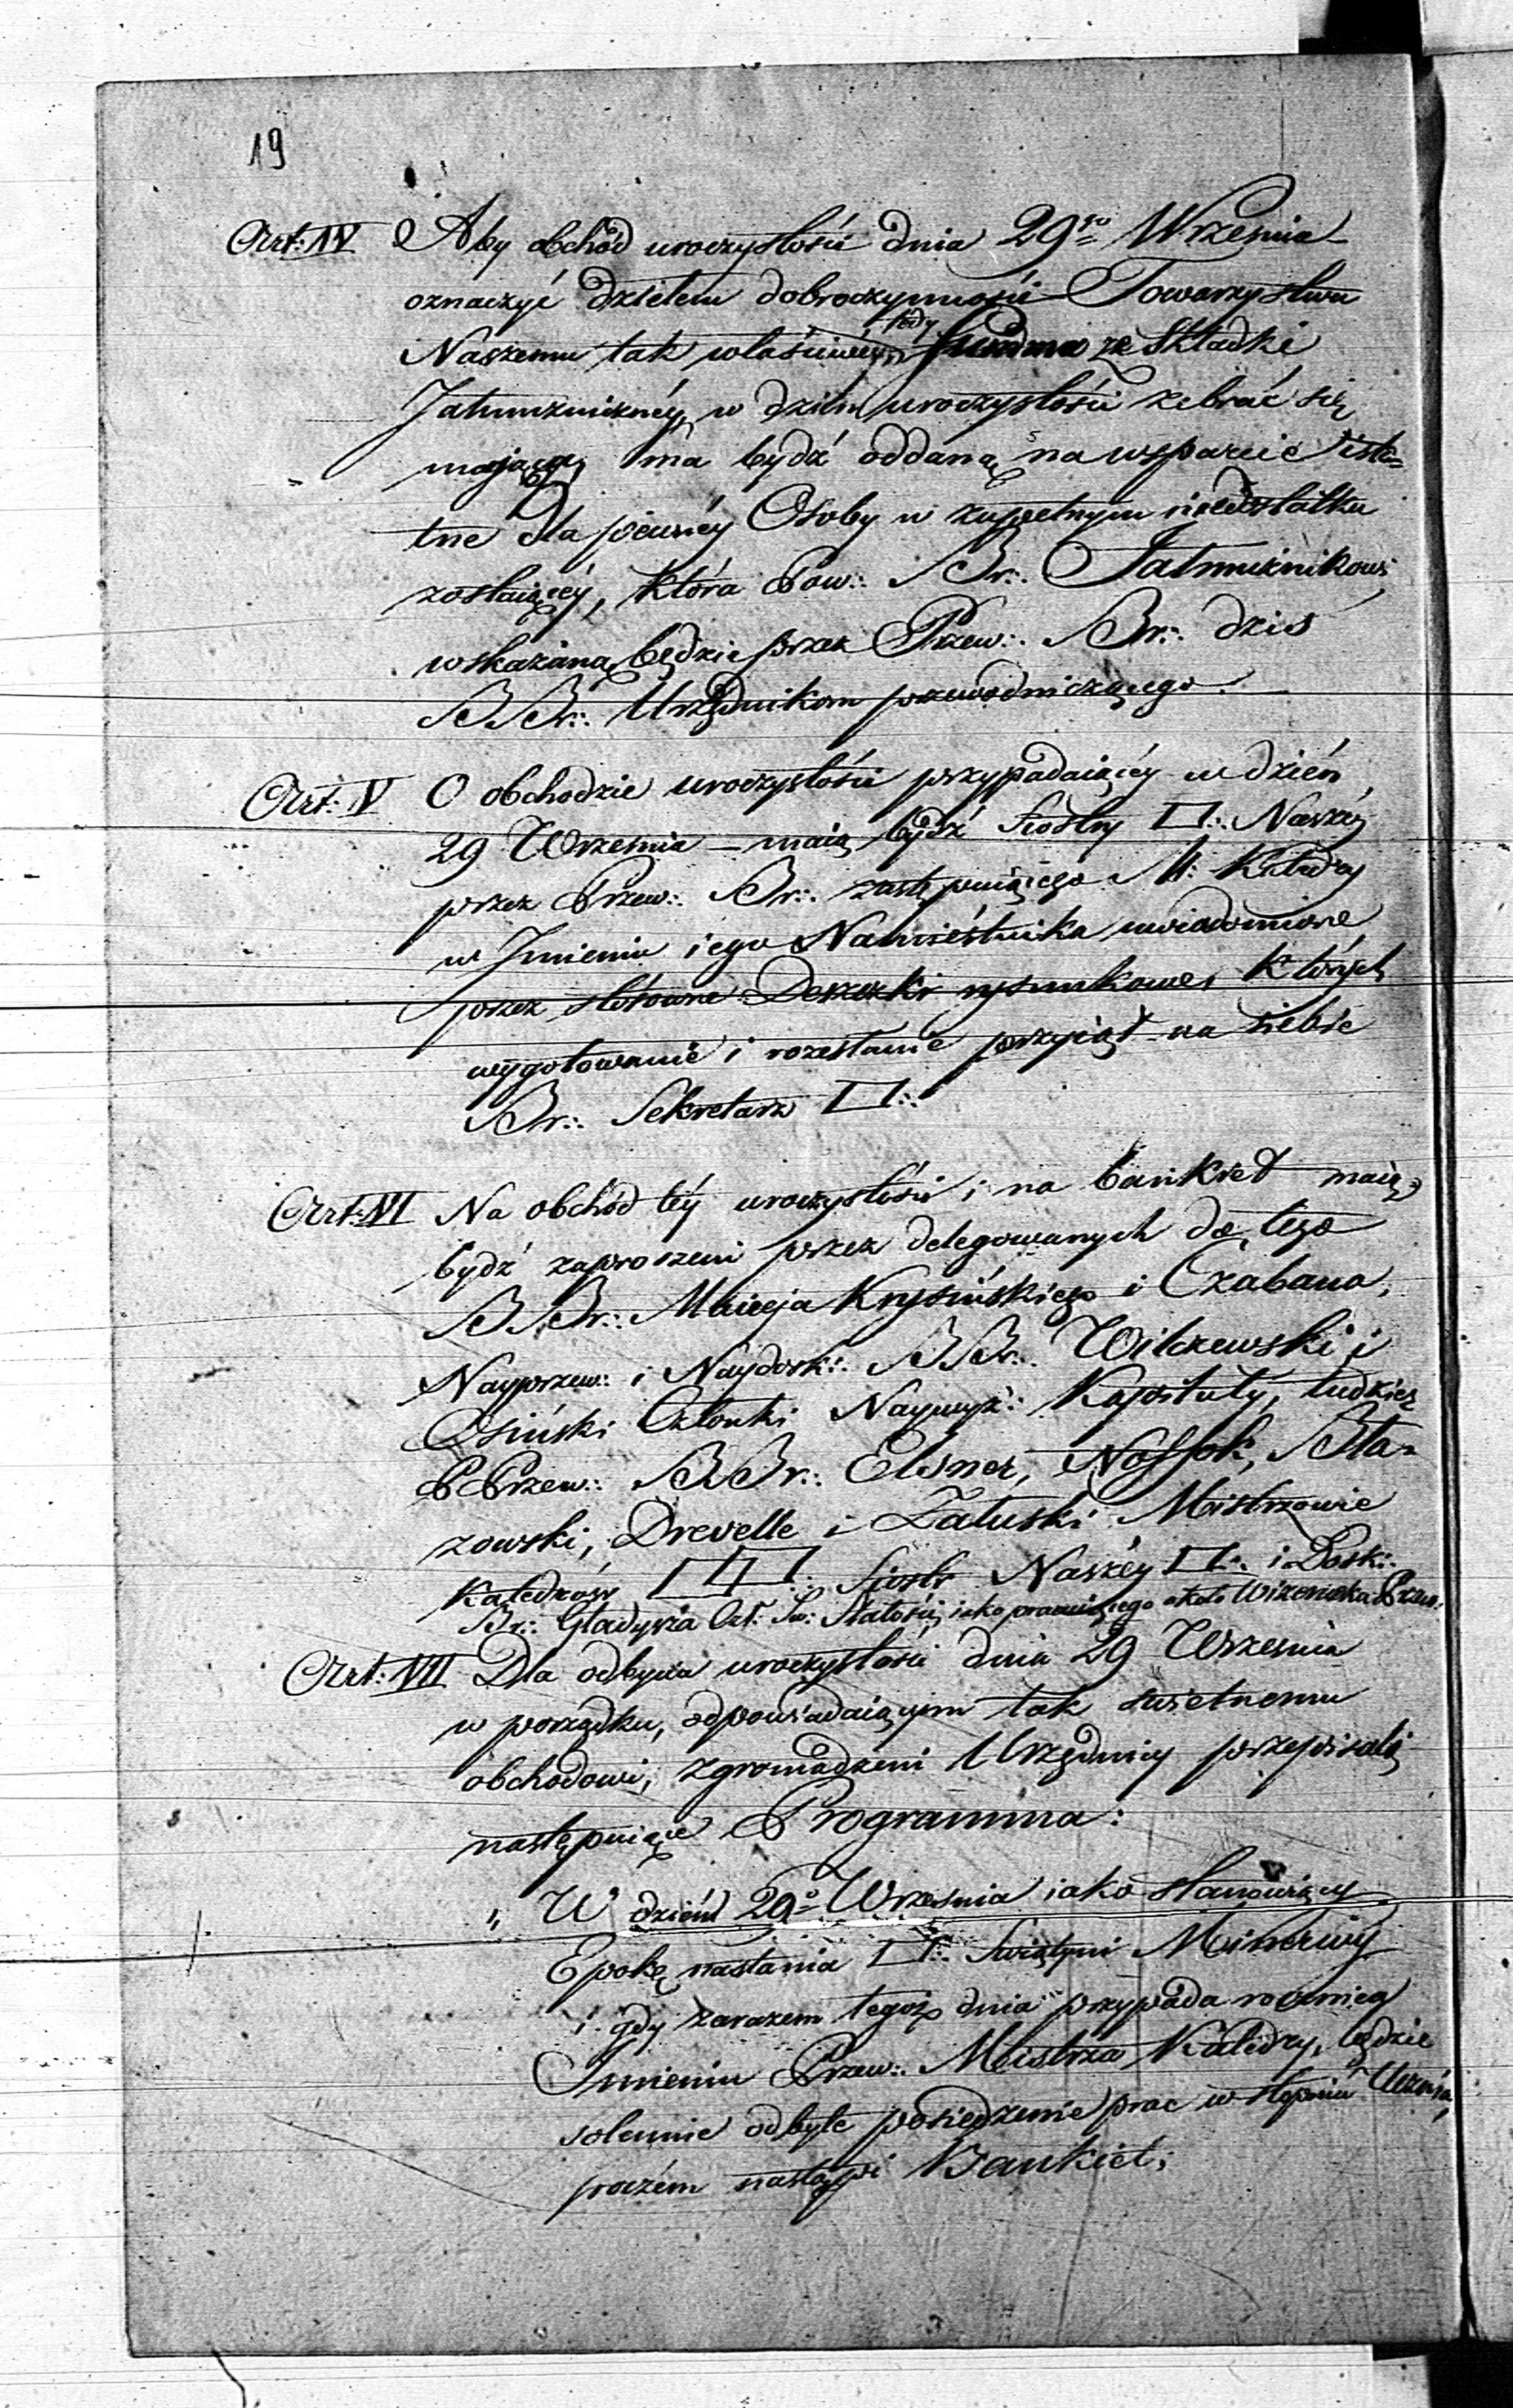 19
Art: IV Aby obchód uroczystości dnia 29go Września
oznaczyć dziełem dobroczynności Towarzystwu
Naszemu tak właściwém, tedy summa ze składki
Jałmużniczéy, w dzień uroczystości zebrać się
mająca, ma bydź oddaną na wsparcie isto=
tne dla pewnéy Osoby w zupełnym niedostatku
zostaiącéy, która Pow:. Br:. Jałmużnikowi
wskazaną będzie przez Przew:. Br:. dziś
BBr:. Urzędnikom przewodniczącego.
Art: V O obchodzie uroczystości przypadaiącéy w dzień
29 Września – maią bydź Siostry □:. Naszéy
przez Przew:. Br:. zastępuiącego M: Katedry
w Jmieniu iego Namiestnika uwiadomione
przez stosowne Deszczki rysunkowe, których
wygotowanie i rozesłanie przyiął na siebie
Br:. Sekretarz □:.
Art: VI Na obchód téy uroczystości i na bankiet maią
bydź zaproszeni przez delegowanych do tego
BBr:. Macieja Krysińskiego i Czabana,
Nayprzew: i Naydosk:. BBr:. Wilczewski i
Osiński Członki Naywyż: Kapituły, tudzież
PPrzew:. BBr:. Elsner, Nossok, Bła=
zowski, Drevelle i Załuski Mistrzowie
Katedrów □□:. Siostr Naszéy □:. i Dosk:.
Br:. Gładysza Czł: Św: Stałości, iako pracuiącego około Wizerunku Przew:.
Art: VII Dla odbycia uroczystości dnia 29 Września
w porządku, odpowiadaiącym tak świetnemu
obchodowi, zgromadzeni Urzędnicy przepisali
następuiące Programma:
„ W dzień 29o Września iako stanowiący
Epokę nastania □:. Świątyni Minerwy
i gdy zarazem tegoż dnia przypada rocznica
Jmienin Przew:. Mistrza Katedry, będzie
solennie odbyte posiedzenie prac w stopniu Ucznia,
poczém nastąpi Bankiet;